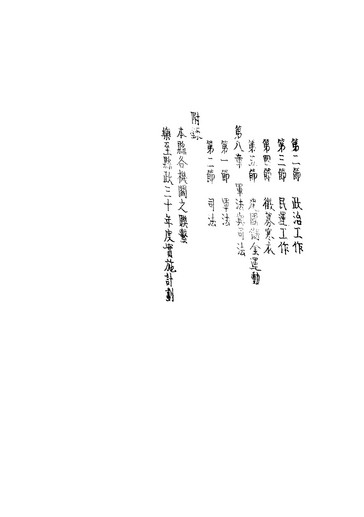 第二節 政治工作
第三節 民運工作
第四節 徵募寒衣
第五節 節儲金運動
第八章 軍法與司法
第一節 軍法
第二節 司法
附錄
本縣各機關之聯繫
樂至縣政三十年度實施計劃